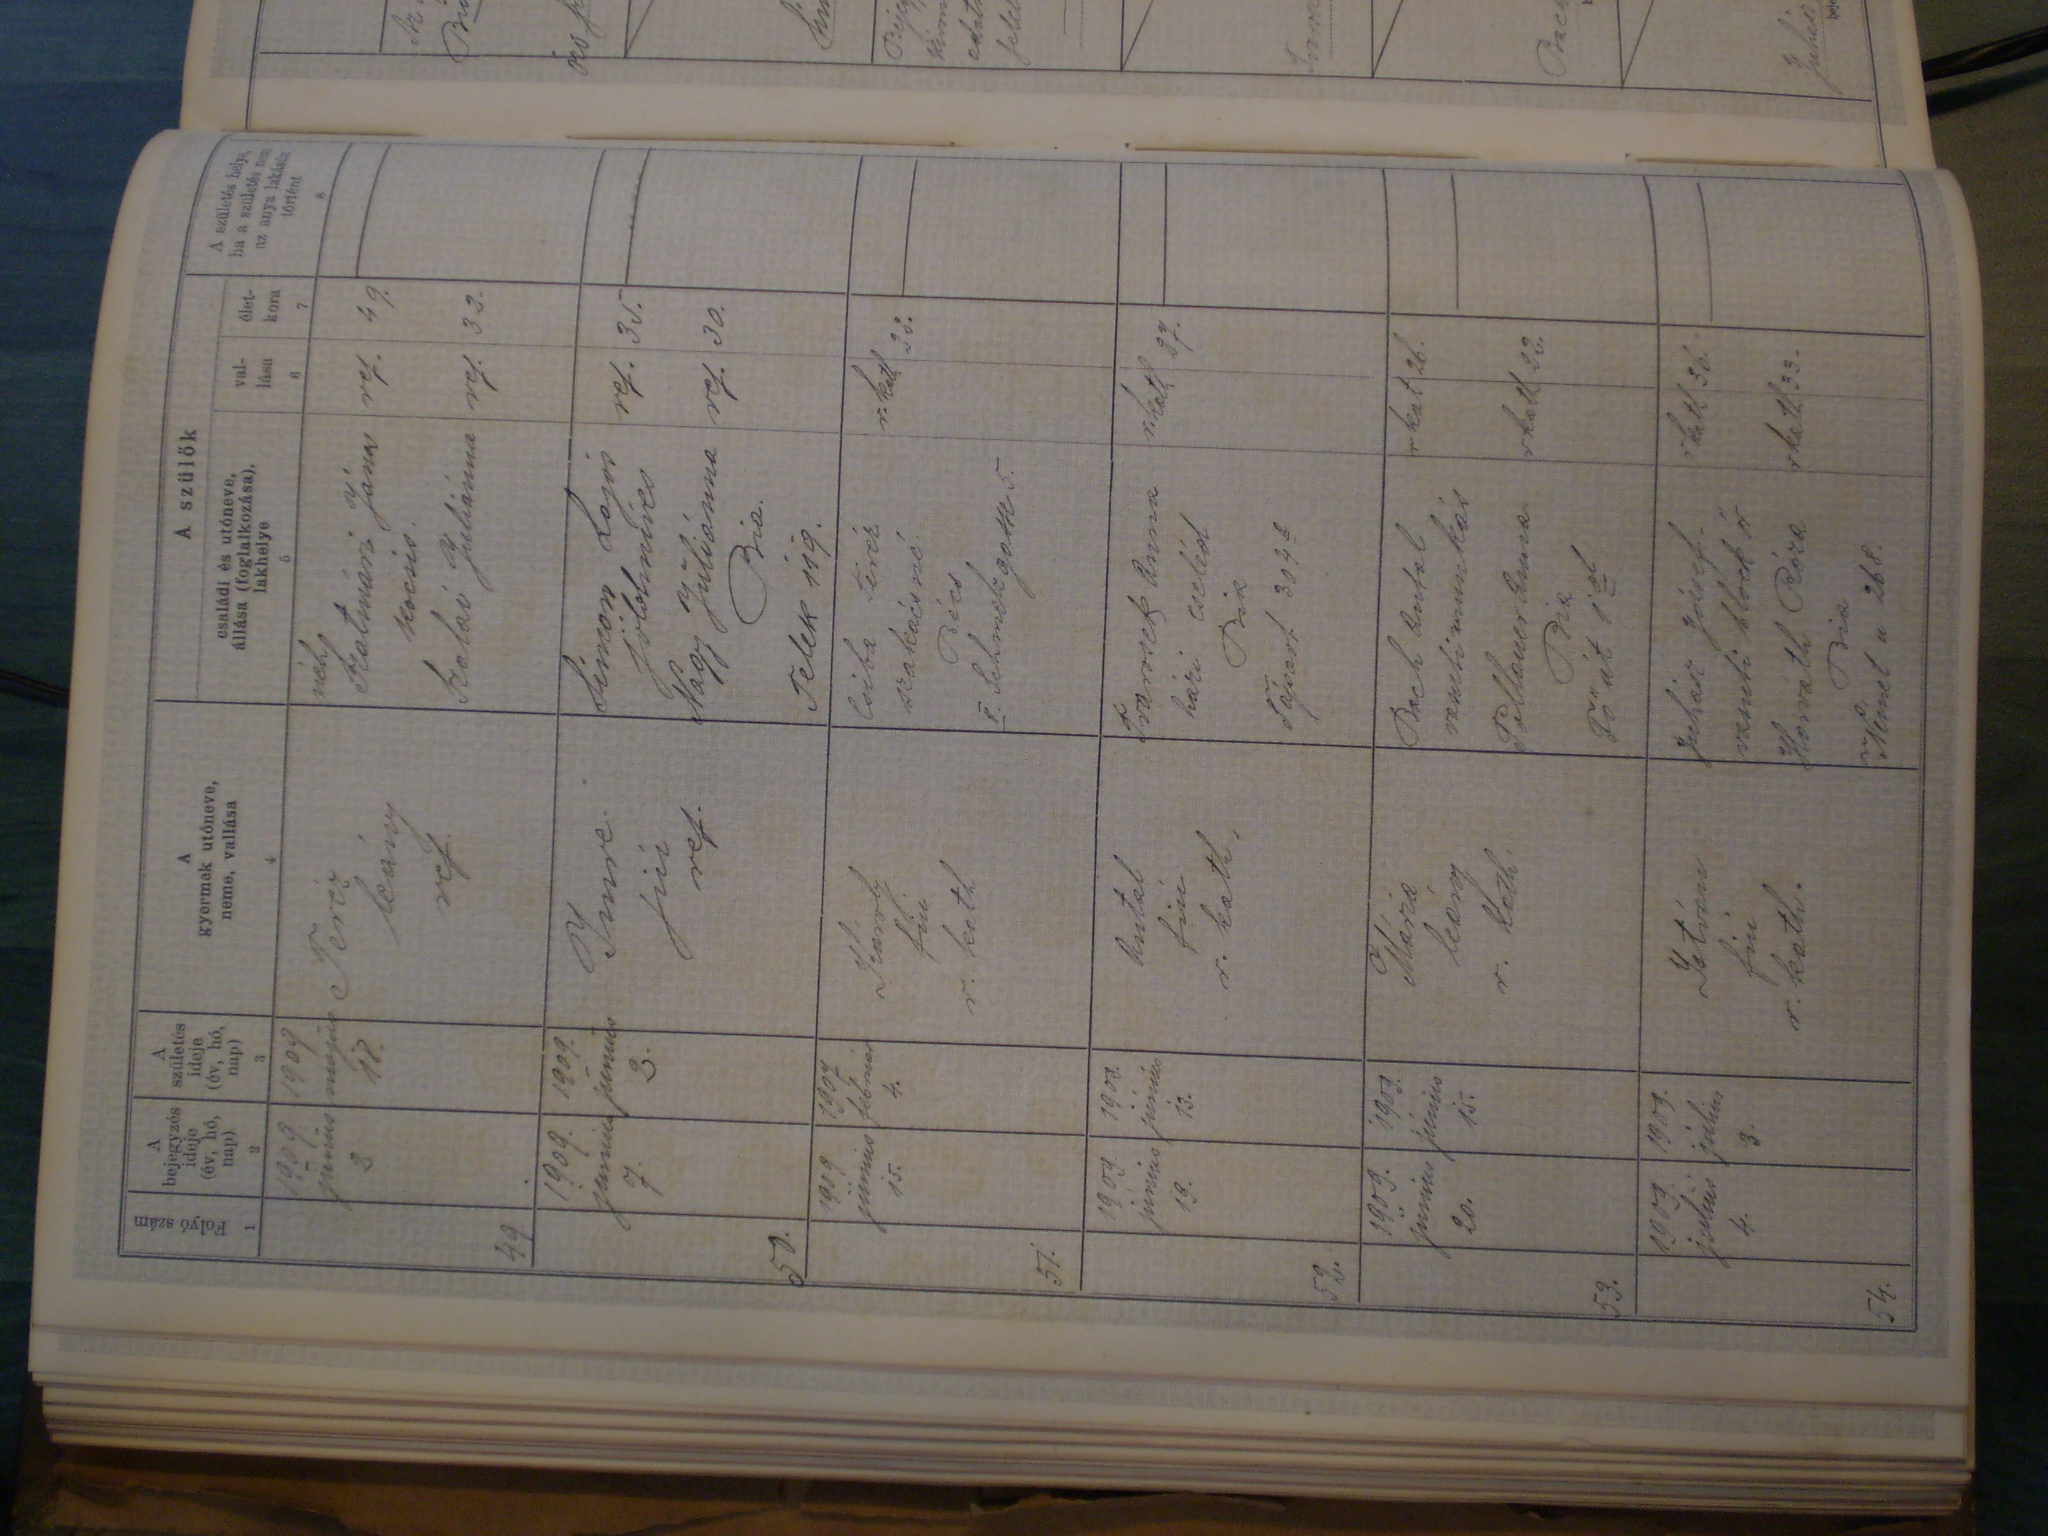 Folyó szám
A bejegyzés ideje (év, hó, nap)
A születés ideje (év, hó, nap)
A gyermek utóneve, neme, vallása
A szülők
családi és utóneve, állása (foglalkozása), lakhelye
val-lása
élet-kora
A születés helye, ha a születés nem az anya lakásán történt
1 2 3 4 5 6 7 8
49.
1909. junius 3
1909 majus 18.
Teréz
leány
ref.
néh
Kalmár János ref. 49.
kocsis.
Juliánna ref. 33.
50.
1909. junius 7.
1909. junius 3.
Imre
fiú
ref.
Simon Lajos ref. 35.
földmíves
Nagy Juliánna ref. 30.
Bia.
Telek 119.
51.
1909 június 15.
1907 február 4.
Károly
fiu
r. kath
Csiba Teréz r. kath 23.
szakácsnő
Bécs
5.
52.
1909. június 19.
1909. június 13.
Antal
fiu
r. kath.
Anna r. kath 27.
házi cseléd
Bia
Tópart
53.
1909. június 20.
1909. június 15.
Mária
leány
r. kath.
Bach Antal r kat 26.
vasuti munkás
Feldhauer Anna r kath 22.
Bia
Fő út
54.
1909. július 4.
1909. július 3.
István
fiu
r. kath.
Juhász József r kath 36.
vasuti block őr
Horváth Róza r kath 33.
Bia
Német u 268.